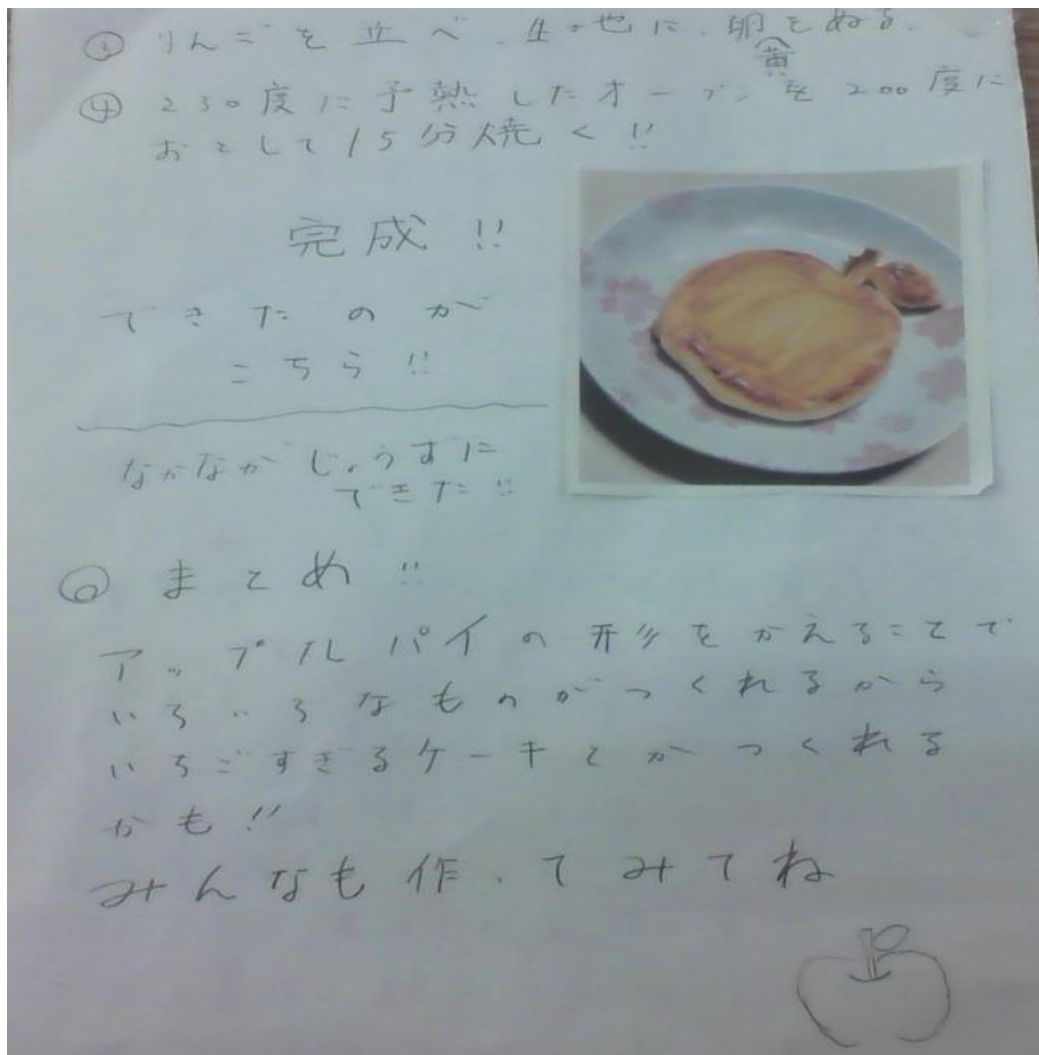 ③ りんごを並べ、生地に、卵黄をぬる。
④ 230度に予熱したオーブンを200度に
おとして15分焼く!!
完成!!
できたのが
こちら!!
なかなかじょうずに
できた!!
◎ まとめ!!
アップルパイの形をかえることで
いろいろなものがつくれるから
いちごすぎるケーキとかつくれる
かも!!
みんなも作ってみてね